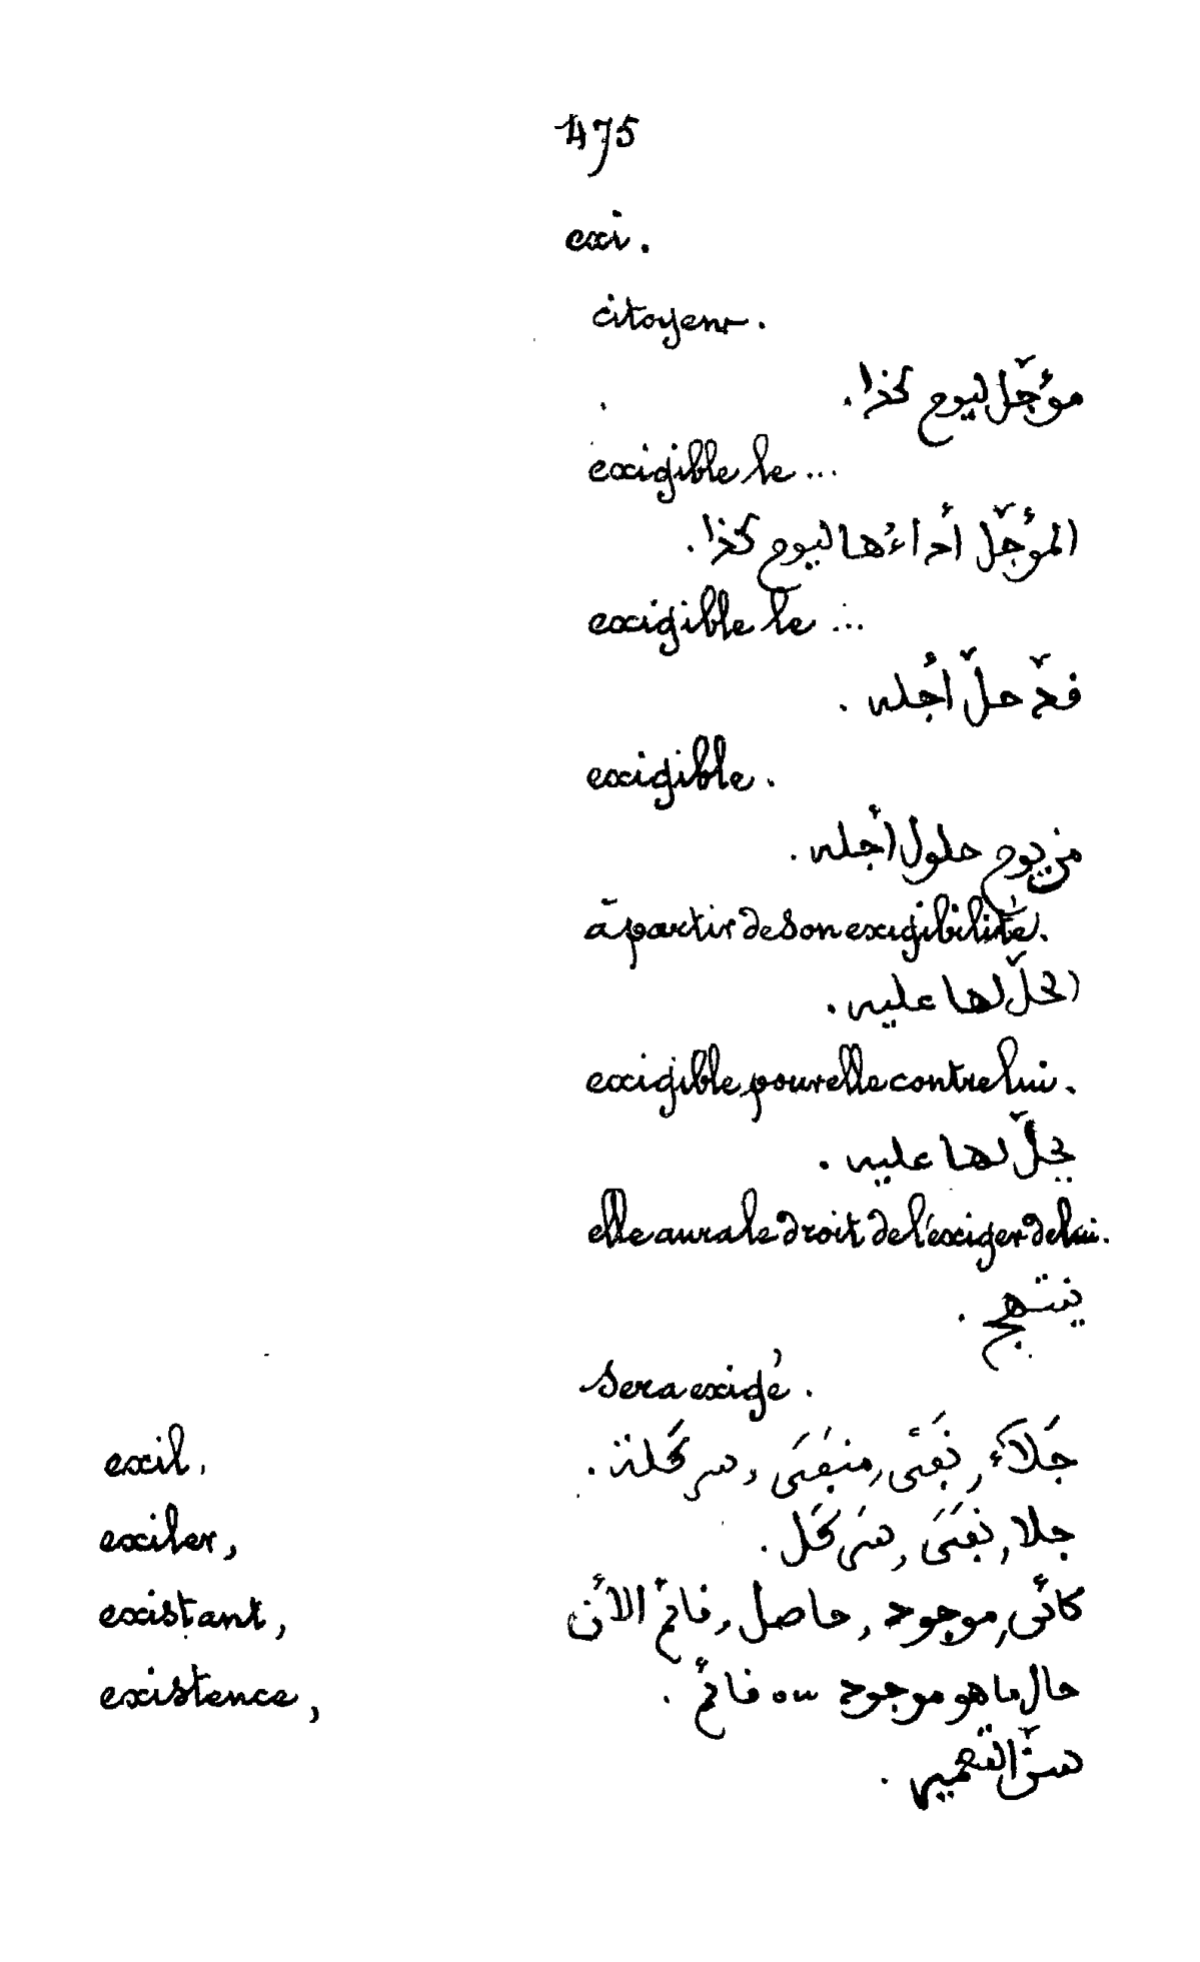 475
exi.
citoyen.
مؤجّل ليوم كذا.
exigible le ...
المؤجّل أداءُها ليوم كذا.
exigible le ...
قدّ حلّ أجله.
exigible.
من يوم حلول أجله.
à partir de son exigibilité.
الحلّ لها عليه.
exigible pour elle contre lui.
يحلّ لها عليه.
elle aura le droit de l'exiger de lui.
ينتهج.
sera exigé.
exil, جَلَاء, نَفْى, مَنفَى,
exiler, جلا, نَفَى,
existant, كائن, موجود, حاصل, قائم الآن
existence, حال ما هو موجود ou قائم.
سنّ التمييز.